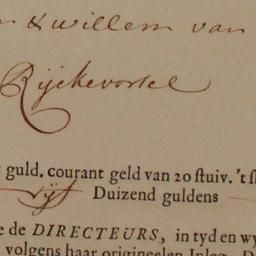 n & willem van
Rijckevorsel
guld. courant geld van 20 stuiv. 't st
vijf Duizend guldens
e de DIRECTEURS, in tyd en wy
volgens haar origineelen Inleg. D